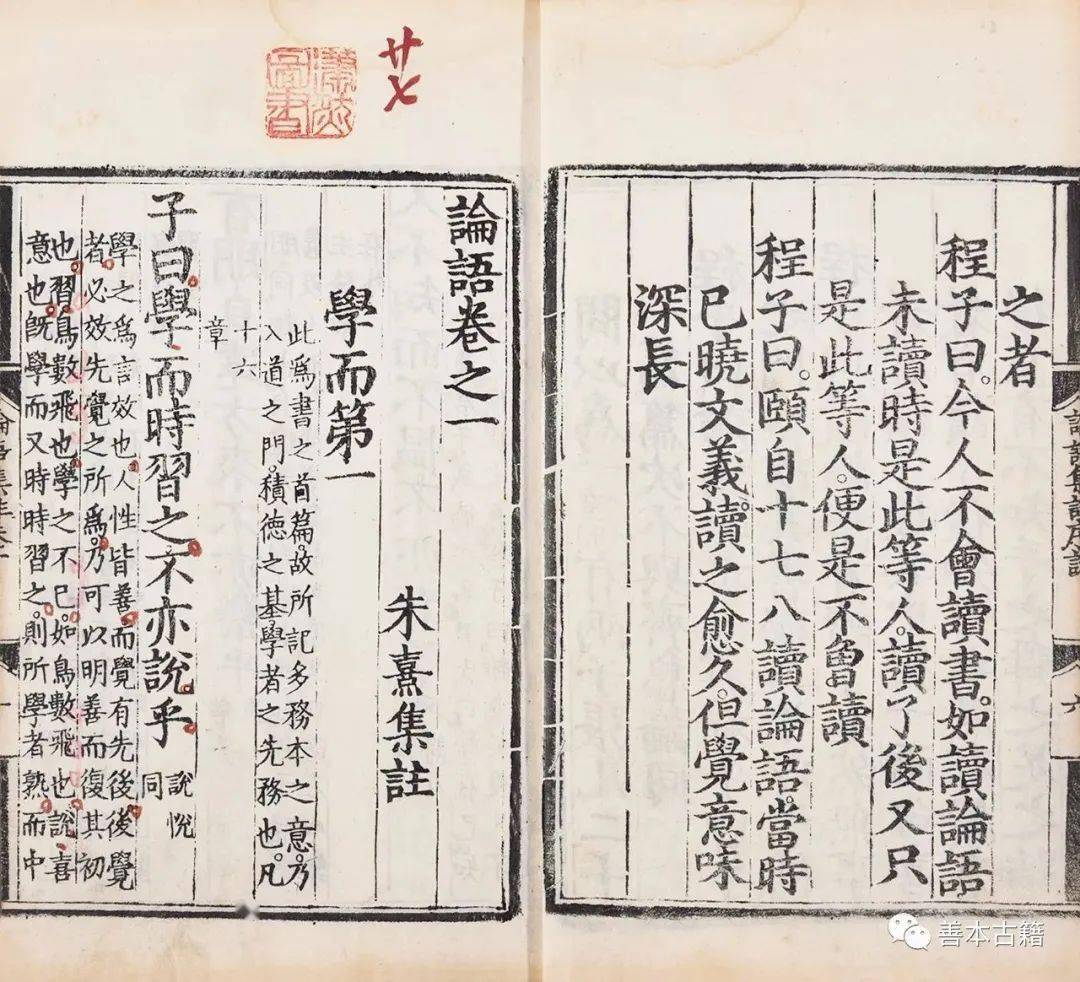 之者
程子曰。今人不會讀書。如讀論語
未讀時是此等人。讀了後又只
是此等人。便是不魯讀
程子曰。頤自十七八讀論語。當時
已曉文義。讀之愈久。但覺意味
深長
廿七
論語卷之一
朱熹集註
學而第一
此爲書之首篇。故所記多務本之意。乃
入道之門。積德之基。學者之先務也。凡
十六
章
子曰。學而時習之。不亦說乎
說悅
同
學之爲言效也。人性皆善。而覺有先後。後覺
者必效先覺之所爲。乃可以明善而復其初
也。習。鳥數飛也。學之不已。如鳥數飛也。說。喜
意也。旣學而又時時習之。則所學者熟。而中
善本古籍